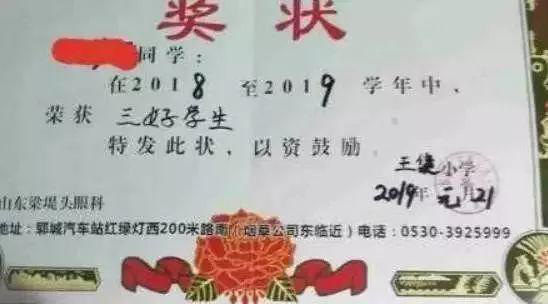 奖状
同学：
在2018至2019学年中、
荣获 三好学生
特发此状，以资鼓励
王堤小学
2019年元月21
山东梁堤头眼科
地址：郓城汽车站红绿灯西200米路南（烟草公司东临近）电话：0530-3925999